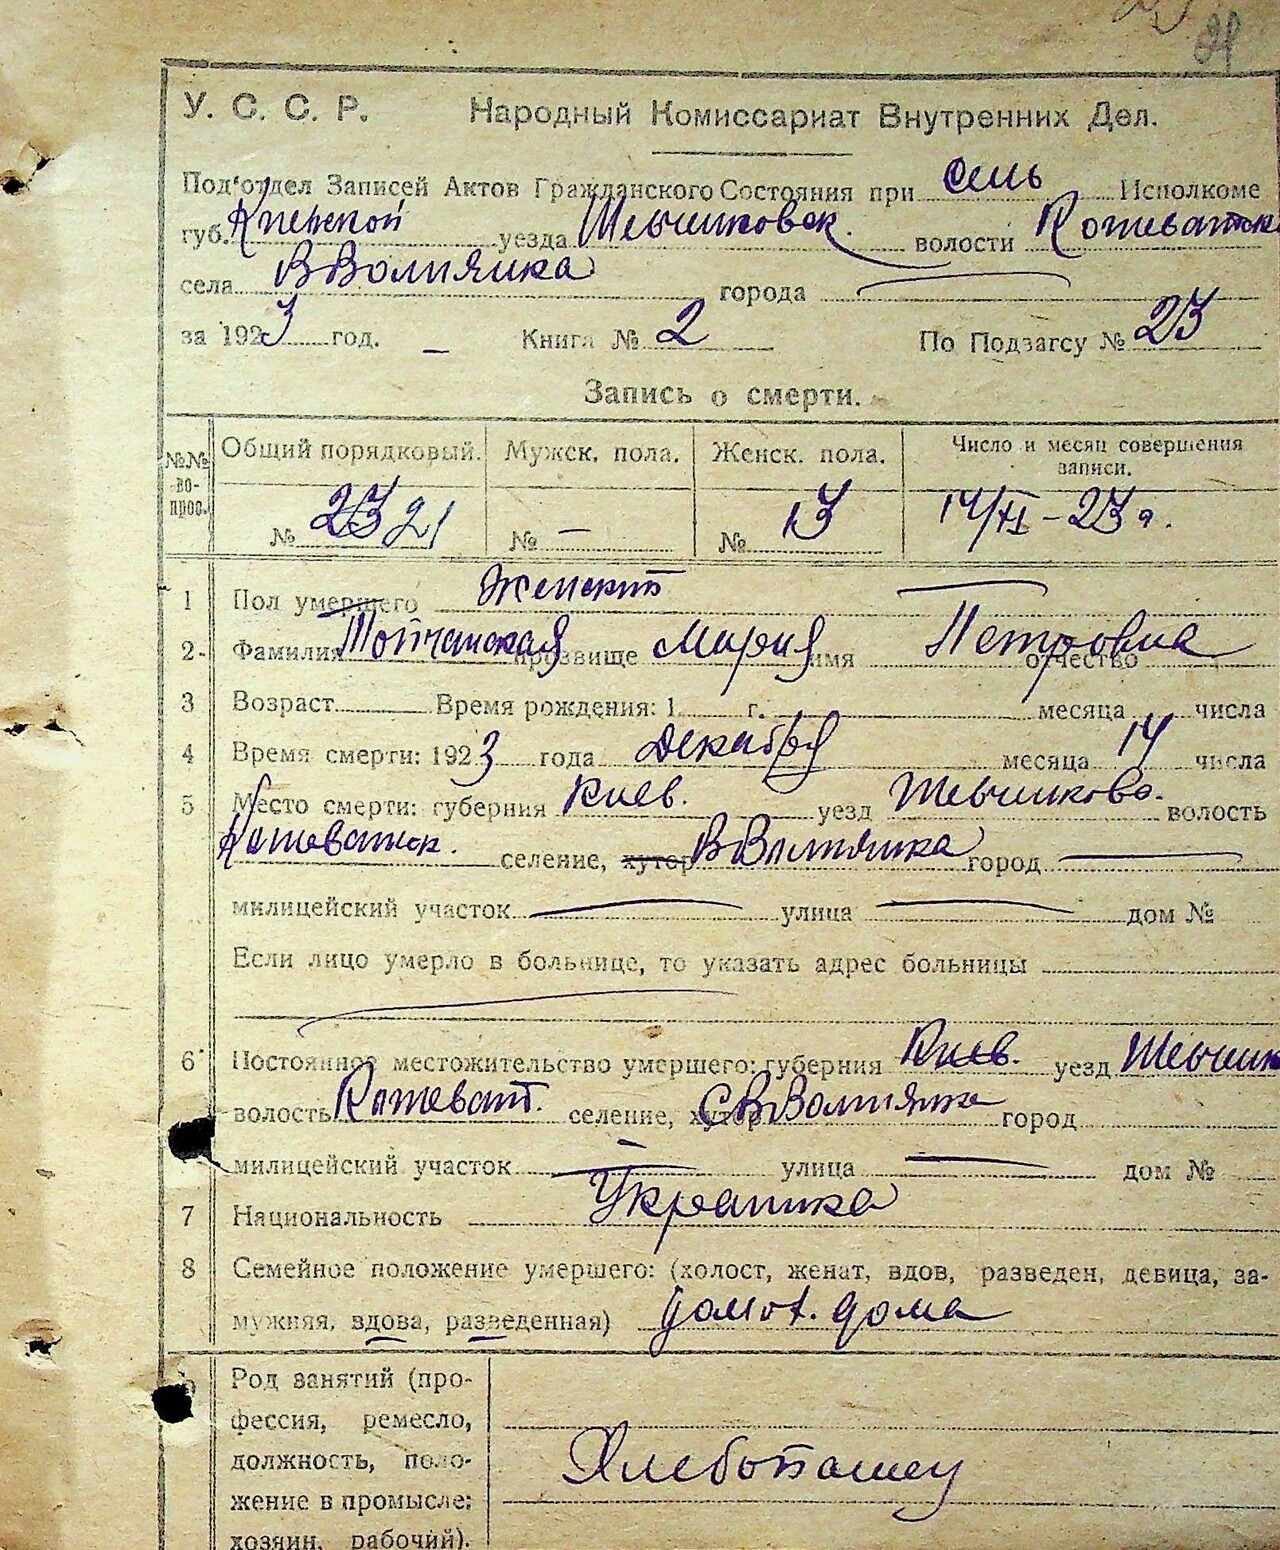 У. С. С. Р. Народный Комиссариат Внутренних Дел.
Под'отдел Записей Актов Гражданского Состояния при сель Исполкоме
губ. Киевской уезда Шевченковск. волости Кошеватск
села ВВолнянка города
за 1923 год. — Книга № 2 По Подзагсу № 23
Запись о смерти.
№№ вопрос. Общий порядковый. Мужск. пола. Женск. пола. Число и месяц совершения записи.
№ 23 21 № — № 13 14/XII - 23 г.
1 Пол умершего Женский
2 Фамилия прозвище Мария имя Петровна отчество
3 Возраст Время рождения: 1 г. месяца числа
4 Время смерти: 1923 года Декабря месяца 14 числа
5 Место смерти: губерния Киев. уезд Шевченково. волость
Кошеватск. селение, хутор ВВолнянка город
милицейский участок улица дом №
Если лицо умерло в больнице, то указать адрес больницы
6 Постоянное местожительство умершего: губерния Киев. уезд Шевченк
волость Кошеват. селение, хутор С ВВолнянка город
милицейский участок улица дом №
7 Национальность Украинка
8 Семейное положение умершего: (холост, женат, вдов, разведен, девица, за-
мужняя, вдова, разведенная) дома
Род занятий (про-
фессия, ремесло,
должность, поло-
жение в промысле:
хозяин, рабочий).
Хлебопашец